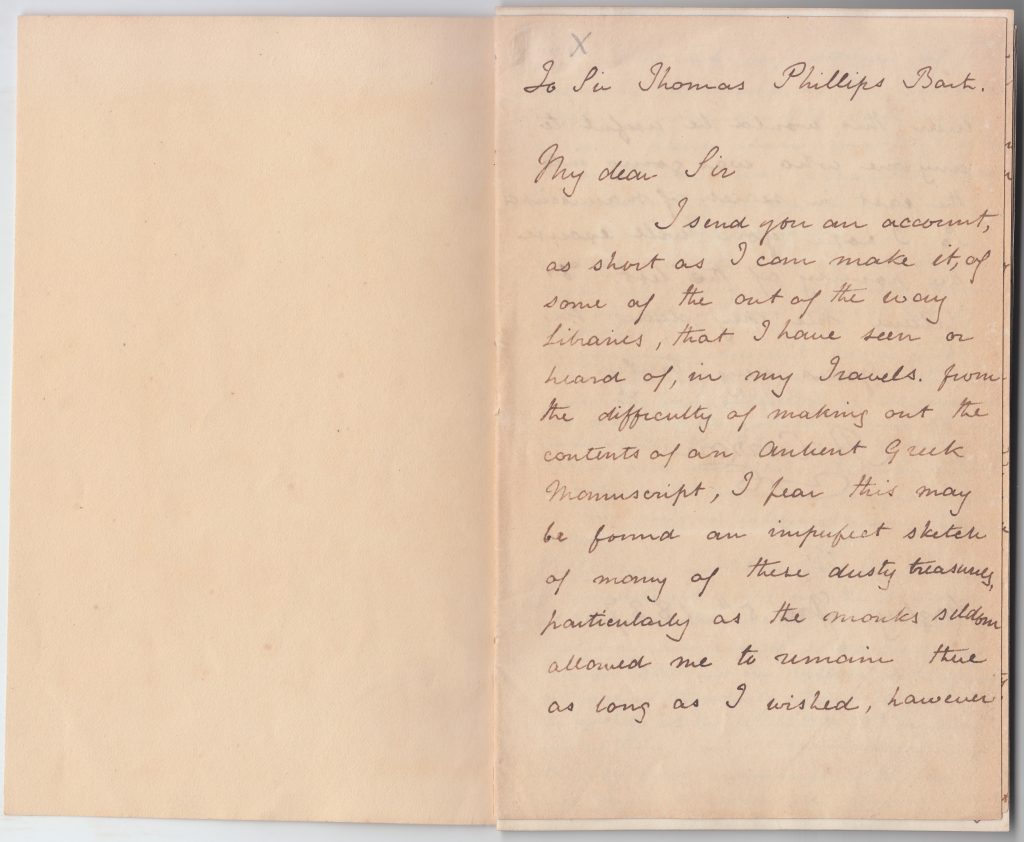 X
To Sir Thomas Phillips Bart.
My dear Sir
I send you an account,
as short as I can make it, of
some of the out of the way
Libraries, that I have seen or
heard of, in my Travels. from
the difficulty of making out the
contents of an Antient Greek
Manuscript, I fear this may
be found an imperfect sketch
of many of these dusty treasures,
particularly as the monks seldom
allowed me to remain there
as long as I wished, however